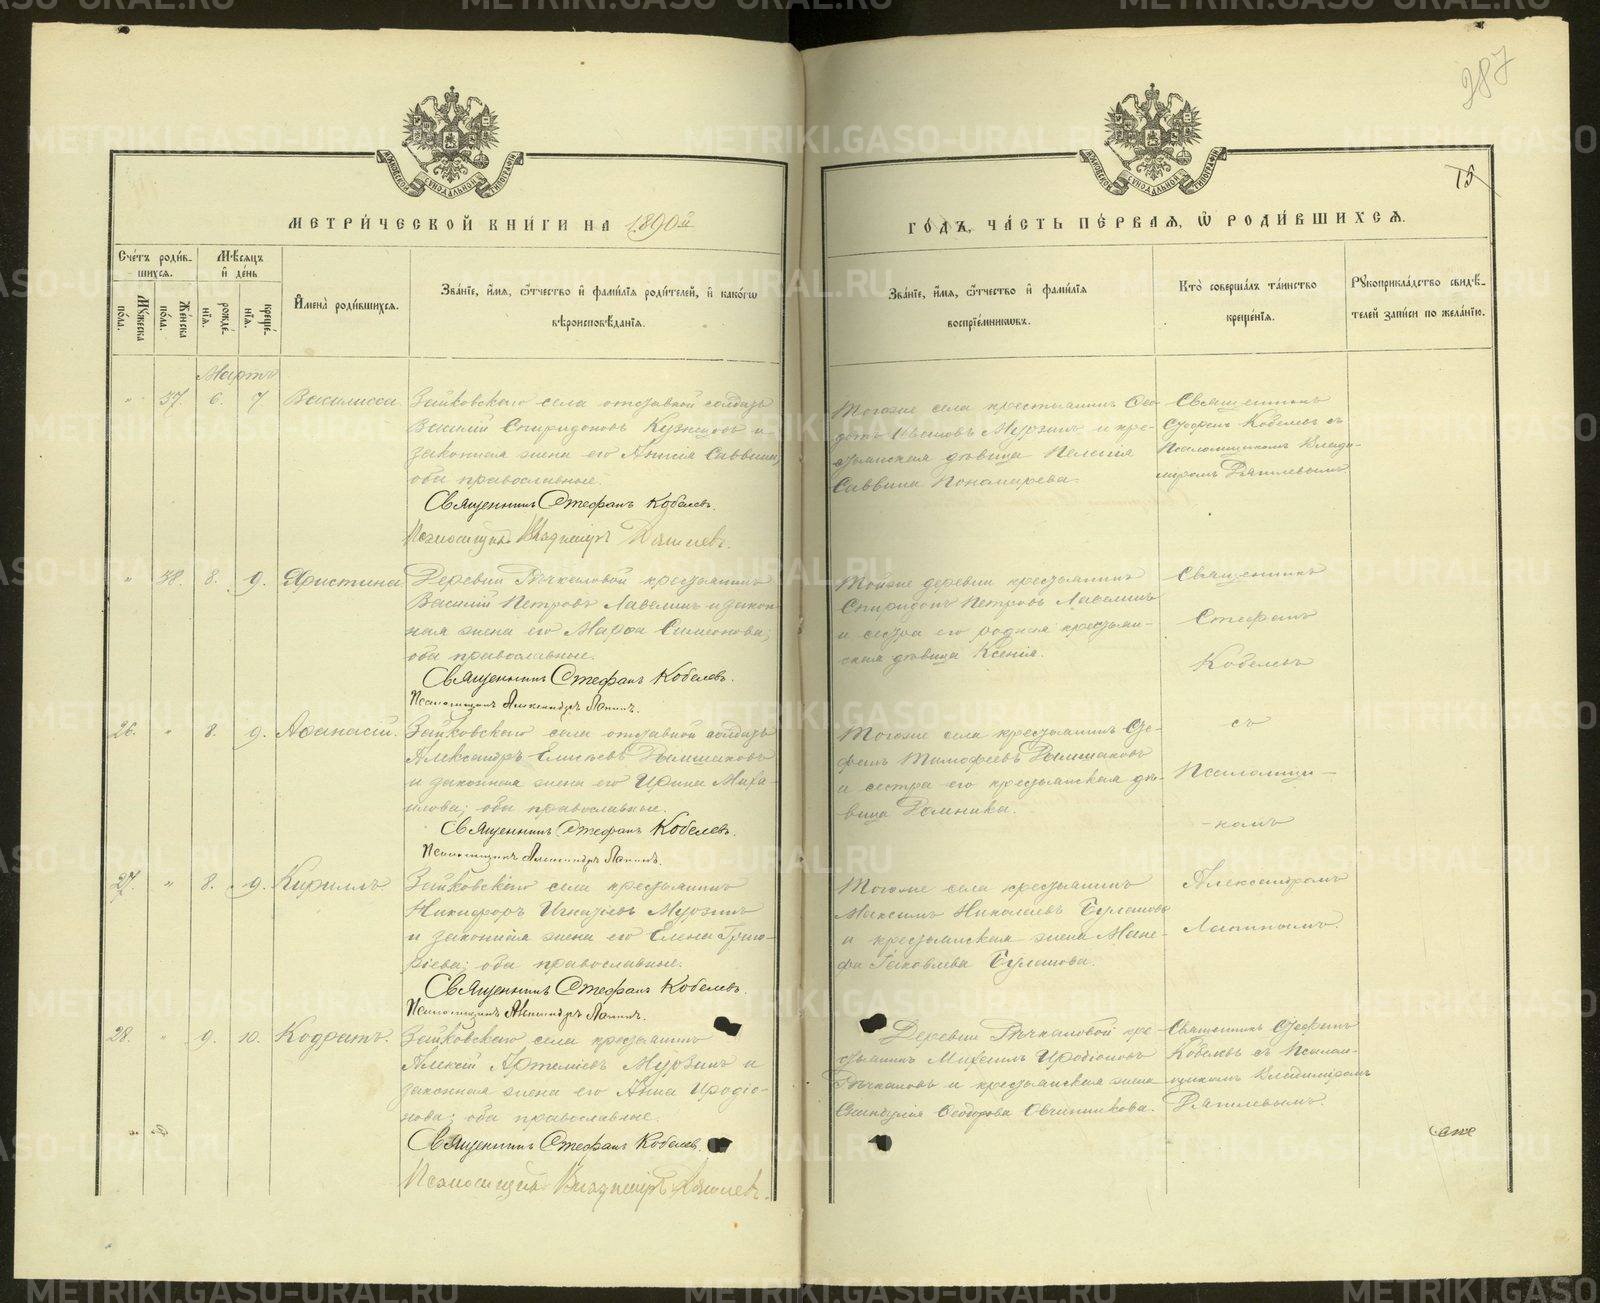 287
15
МЕТРИ́ЧЕСКОЙ КНИ́ГИ НА 1890й
ГО́ДЪ, ЧА́СТЬ ПЕ́РВАЯ, Ѡ҆ РОДИ́ВШИХСЯ.
Сче́тъ роди́в-
шихся.
Мѣ́сяцъ
и҆ де́нь
Мꙋ́жеска по́ла.
Же́нска по́ла.
рожде́нїя.
креще́нїя.
И҆мена̀ роди́вшихся.
Зва́нїе, и҆́мя, ѻ҆́тчество и҆ фами́лїя роди́телей, и҆ како́гѡ
вѣроисповѣ́данїя.
Зва́нїе, и҆́мя, ѻ҆́тчество и҆ фами́лїя
воспрїе́мникѡвъ.
Кто̀ соверша́лъ та́инство
креще́нїя.
Рꙋкоприкла́дство свидѣ́-
телей за́писи по жела́нїю.
Мартъ
" 37. 6. 7 Василисса
Зайковскаго села отставной солдатъ
Василій Спиридоновъ Кузнецовъ и
законная жена его Анисія Саввина,
оба православные.
Священникъ Стефанъ Кобелевъ.
Псаломщикъ Владиміръ
Тогоже села крестьянинъ Ѳео-
дотъ Ивановъ Мурзинъ и кре-
стьянская дѣвица Пелагія
Саввина Пономарева.
Священникъ
Стефанъ Кобелевъ съ
Псаломщикомъ Влади-
міромъ
" 38. 8. 9. Христина
Деревни Рѣчкаловой крестьянинъ
Василій Петровъ Лавелинъ и закон-
ная жена его Марѳа Симеонова;
оба православные.
Священникъ Стефанъ Кобелевъ.
Псаломщикъ Александръ Лапинъ.
Тойже деревни крестьянинъ
Спиридонъ Петровъ Лавелинъ
и сестра его родная крестьян-
ская дѣвица Ксенія.
Священникъ
Стефанъ
Кобелевъ
съ
Псаломщи-
-комъ
Александромъ
Лапинымъ.
26. " 8. 9. Аѳанасій.
Зайковскаго села отставной солдатъ
Александръ Елисѣевъ
и законная жена его Ирина Миха-
илова; оба православные.
Священникъ Стефанъ Кобелевъ.
Псаломщикъ Александръ Лапинъ.
Тогоже села крестьянинъ Сте-
фанъ Тимофеевъ
и сестра его крестьянская дѣ-
вица Домника.
27. " 8. 9. Кириллъ
Зайковскаго села крестьянинъ
Никифоръ Игнатіевъ Мурзинъ
и законная жена его Елена Григо-
ріева; оба православные.
Священникъ Стефанъ Кобелевъ.
Псаломщикъ Александръ Лапинъ.
Тогоже села крестьянинъ
Максимъ Николаевъ Булановъ
и крестьянская жена Мане-
фа Іаковлева Буланова.
28. " 9. 10. Кодратъ.
Зайковскаго села крестьянинъ
Алексій Артеміевъ Мурзинъ и
законная жена его Анна Иродіо-
нова; оба православные.
Священникъ Стефанъ Кобелевъ.
Псаломщикъ Владиміръ
Деревни Рѣчкаловой кре-
стьянинъ Михаилъ Иродіоновъ
Рѣчкаловъ и крестьянская жена
Ѳеодорова Овчинникова.
Священникъ Стефанъ
Кобелевъ съ Псалом-
щикомъ Владиміромъ